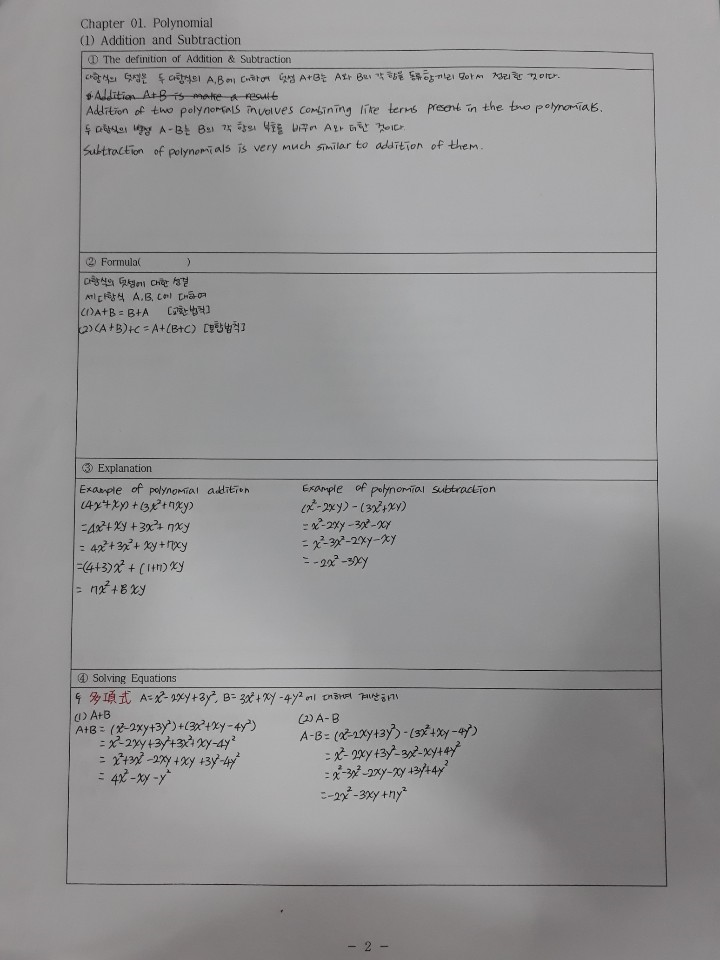 Chapter 01. Polynomial
(1) Addition and Subtraction
① The definition of Addition & Subtraction
다항식의 덧셈은 두 다항식의 A,B에 대하여 덧셈 A+B는 A와 B의 각 항을 동류항끼리 모아서 정리한 것이다.
Addition A+B is make a result
Addition of two polynomials involves combining like terms present in the two polynomials.
두 다항식의 뺄셈 A-B는 B의 각 항의 부호를 바꾸어 A와 더한 것이다
Subtraction of polynomials is very much similar to addition of them.
② Formula( )
다항식의 덧셈에 대한 성질
세 다항식 A,B,C에 대하여
(1) A+B = B+A [교환법칙]
(2) (A+B)+C = A+(B+C) [결합법칙]
③ Explanation
Example of polynomial addition
(4x²+xy) + (3x²+7xy)
=4x²+xy + 3x²+ 7xy
= 4x²+3x²+ xy+7xy
=(4+3)x² + (1+7)xy
= 7x²+8xy
Example of polynomial subtraction
(x²-2xy) - (3x²+xy)
= x²-2xy -3x²-xy
= x²-3x²-2xy-xy
= -2x²-3xy
④ Solving Equations
두 多項式 A=x²-2xy+3y², B=3x²+xy-4y²에 대하여 계산하기
(1) A+B
A+B = (x²-2xy+3y²)+(3x²+xy-4y²)
= x²-2xy+3y²+3x²+xy-4y²
= x²+3x²-2xy+xy+3y²-4y²
= 4x²-xy-y²
(2) A-B
A-B = (x²-2xy+3y²)-(3x²+xy-4y²)
= x²-2xy+3y²-3x²-xy+4y²
= x²-3x²-2xy-xy+3y²+4y²
=-2x²-3xy+7y²
- 2 -